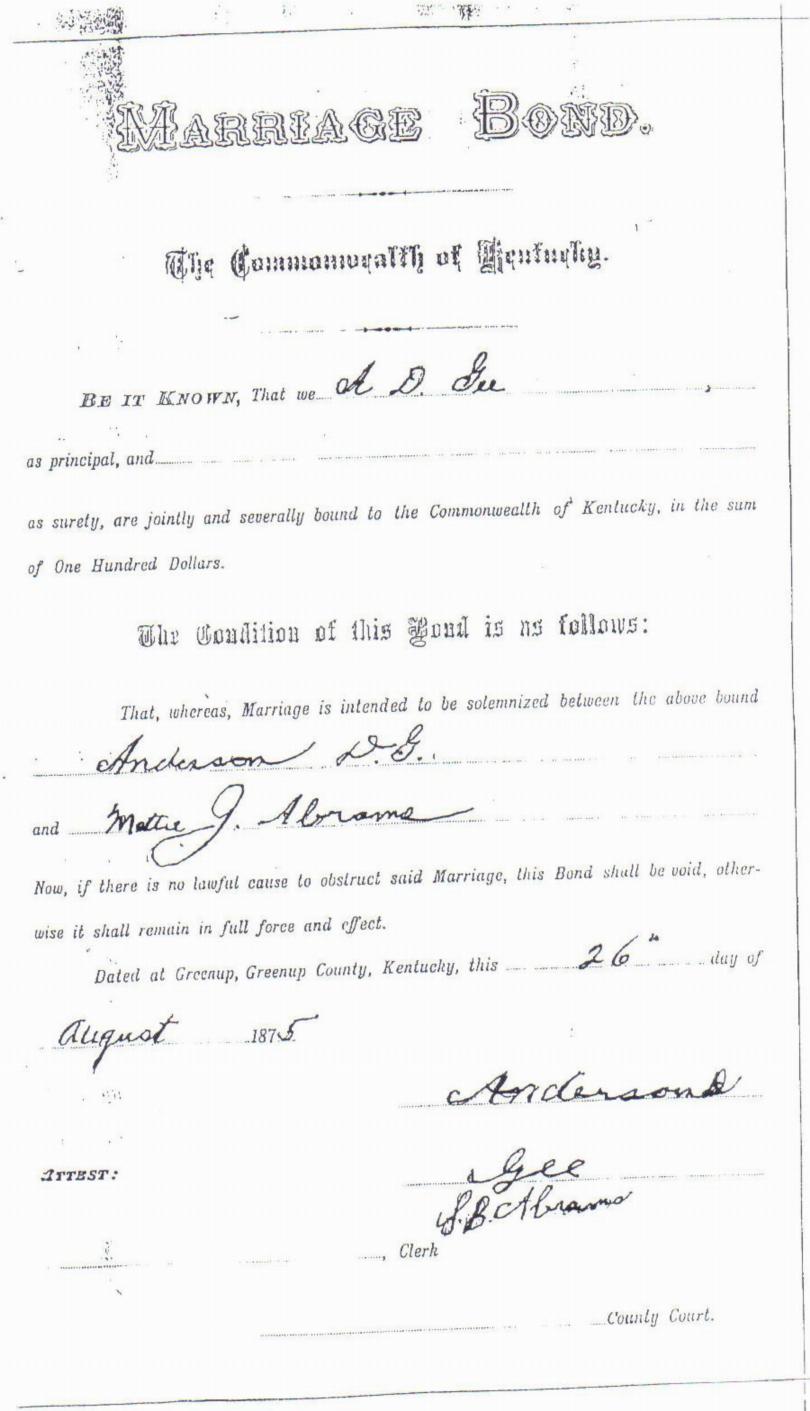 MARRIAGE BOND.
The Commonwealth of Kentucky.
BE IT KNOWN, That we A D. Gee ,
as principal, and
as surety, are jointly and severally bound to the Commonwealth of Kentucky, in the sum
of One Hundred Dollars.
The Condition of this Bond is as follows:
That, whereas, Marriage is intended to be solemnized between the above bound
Anderson D.G.
and Mattie J. Abrams
Now, if there is no lawful cause to obstruct said Marriage, this Bond shall be void, other-
wise it shall remain in full force and effect.
Dated at Greenup, Greenup County, Kentucky, this 26" day of
August 1875
Anderson D
ATTEST: Gee
S.B. Abrams
, Clerk
County Court.